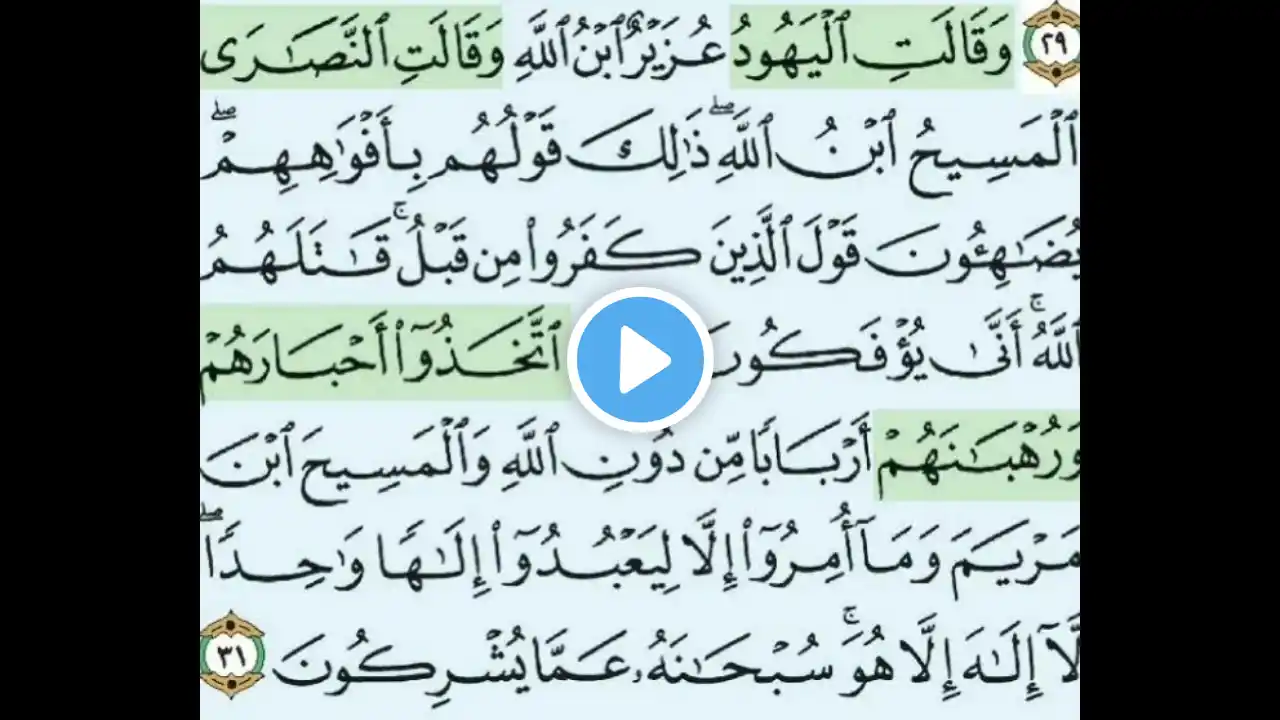 ٢٩ وَقَالَتِ ٱلْيَهُودُ عُزَيْرٌ ٱبْنُ ٱللَّهِ وَقَالَتِ ٱلنَّصَـٰرَى
ٱلْمَسِيحُ ٱبْنُ ٱللَّهِۖ ذَٰلِكَ قَوْلُهُم بِأَفْوَٰهِهِمْۖ
يُضَـٰهِـُٔونَ قَوْلَ ٱلَّذِينَ كَفَرُوا۟ مِن قَبْلُۚ قَـٰتَلَهُمُ
ٱللَّهُۚ أَنَّىٰ يُؤْفَكُونَ ٱتَّخَذُوٓا۟ أَحْبَارَهُمْ
وَرُهْبَـٰنَهُمْ أَرْبَابًا مِّن دُونِ ٱللَّهِ وَٱلْمَسِيحَ ٱبْنَ
مَرْيَمَ وَمَآ أُمِرُوٓا۟ إِلَّا لِيَعْبُدُوٓا۟ إِلَـٰهًا وَٰحِدًاۖ
لَّآ إِلَـٰهَ إِلَّا هُوَۚ سُبْحَـٰنَهُۥ عَمَّا يُشْرِكُونَ ٣١